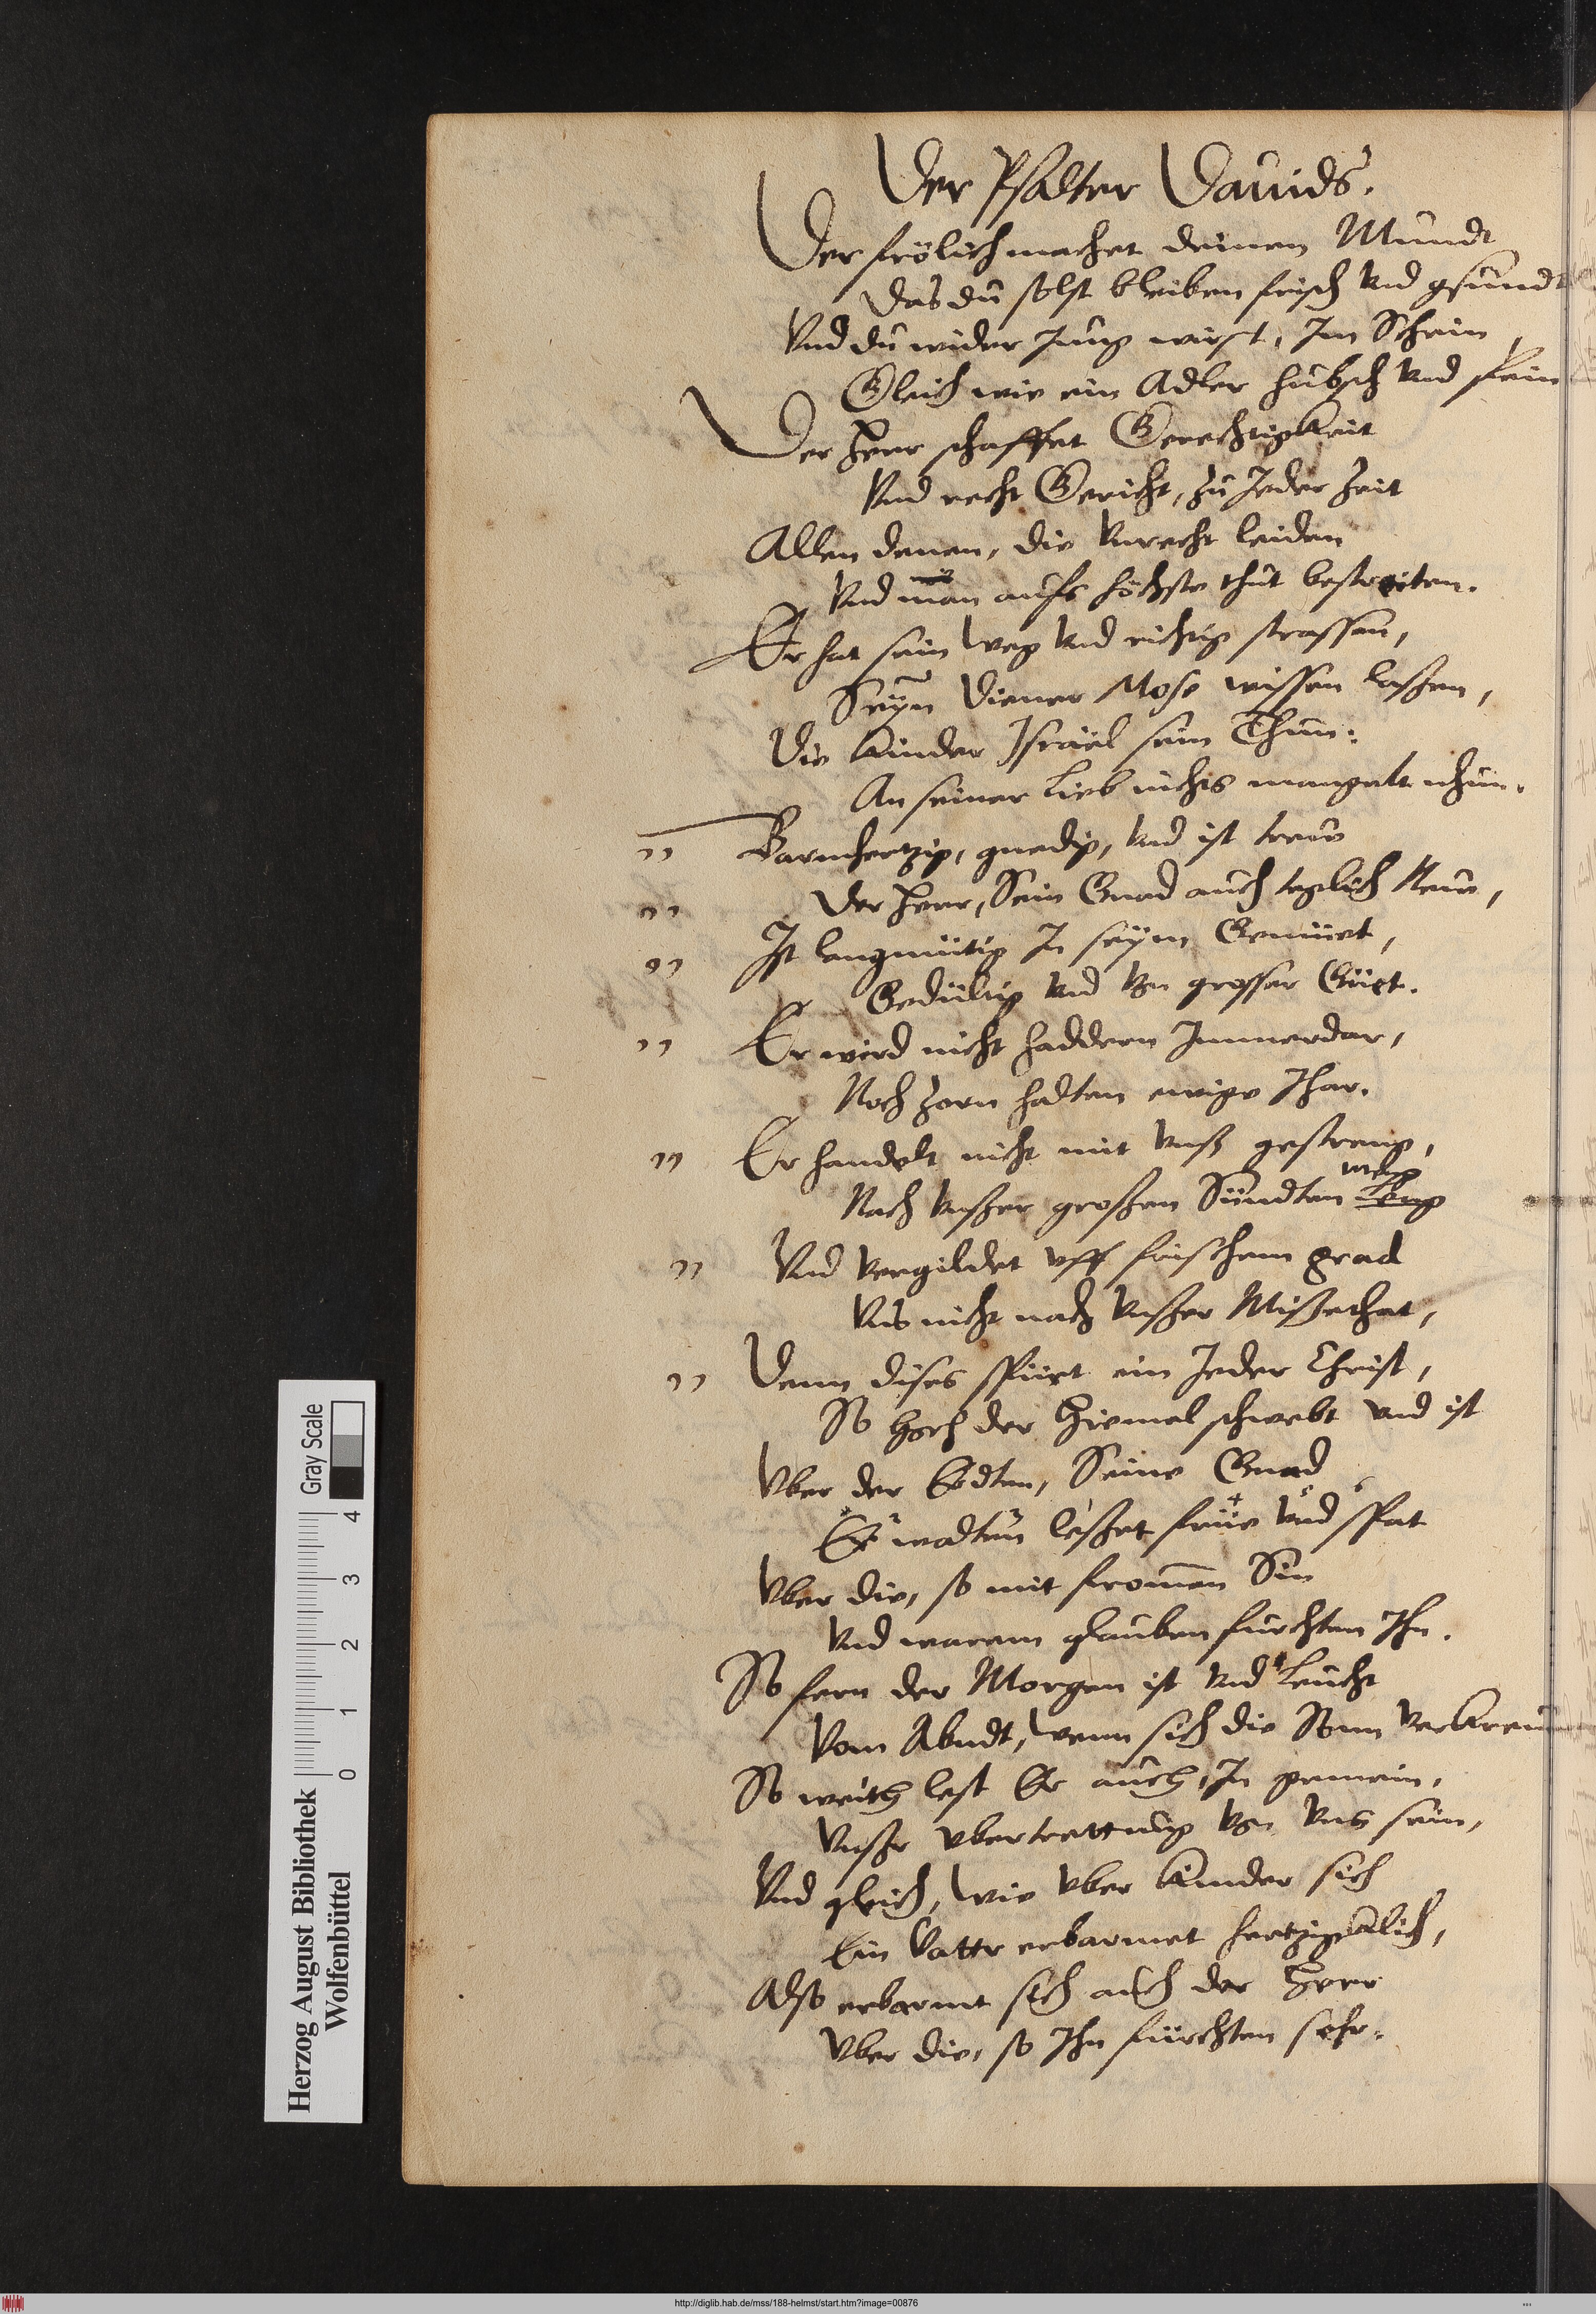 Der Psalter Dauids.
Der frölich machet deinen Mundt
Das du solst bleiben frisch vnd gsundt
Vnd du wider Jung wirst, Im Schein,
Gleich wie ein Adler hubsch vnd fein
Der Herr schaffet Gerechtigkeit
Vnd recht Gericht, zu Jeder Zeit
Allen denen, die Vnrecht leiden
Vnd man aufs höchste thut bestreiten.
Er hat sein Weg vnd richtig strassen,
Seyn Diener Mose wissen lassen,
Die Kinder Israël sein Thun:
An seiner Lieb nichts mangelt nhun.
" Barmhertzig, gnedig, vnd ist trew
" Der Herr, Sein Gnad auch teglich New,
" Ist langmütig In seym Gemüet,
Gedültig vnd von grosser Güet.
" Er wird nicht haddern Immerdar,
Noch Zorn halten ewige Jhar.
" Er handelt nicht mit Vnß gestreng,
meng
Nach Vnßer großen Sündten Leng
" Vnd vergildet vff frischem grad
Vns nicht nach Vnßer Mißethat,
" Denn dises spüret ein Jeder Christ,
So hoch der Hiemel schwebt vnd ist
Vber der Erdten, Seine Gnad
Er waltun leßet früe vnd spat
Vber die, so mit fromen Sin
Vnd warem glauben furchten Ihn.
So fern der Morgen ist vnd Leucht
Vom Abndt, Wenn sich die Sonn verkreu
So weith lest Er auch, In gemein,
Vnßr vbertrettung von Vns sein,
Vnd gleich, Wie vber Kinder sich
Ein Vattr erbarmet hertzigklich,
Also erbarmt sich auch der Herr
Vber die, so Ihn fürchten sehr.
Herzog August Bibliothek
Wolfenbüttel
Gray Scale
0 1 2 3 4
http://diglib.hab.de/mss/188-helmst/start.htm?image=00876